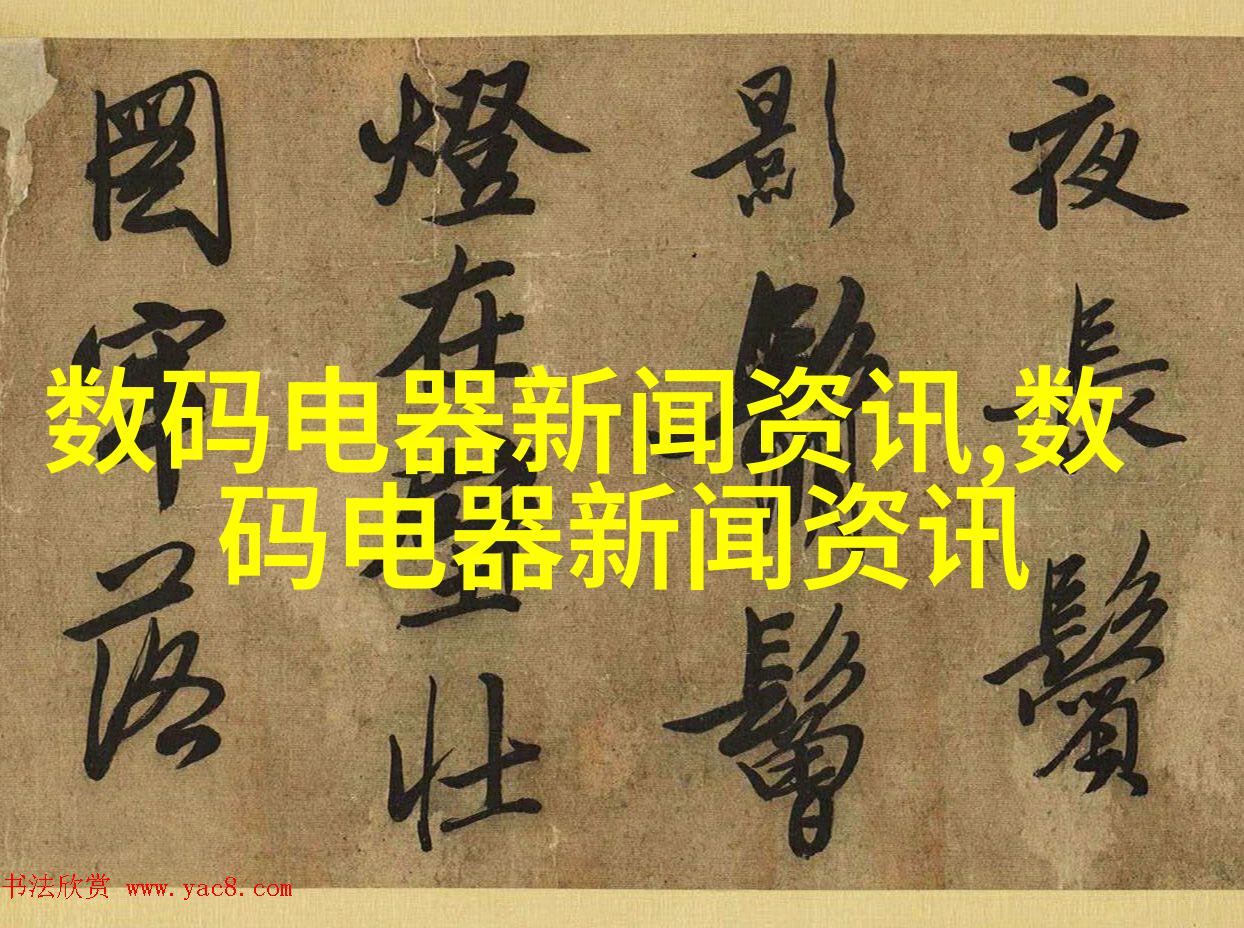 夜長鬢
影鬅鬙
燈在壁壯
圖牢落
数码电器新闻资讯,数
码电器新闻资讯
书法欣赏 www.yac8.com